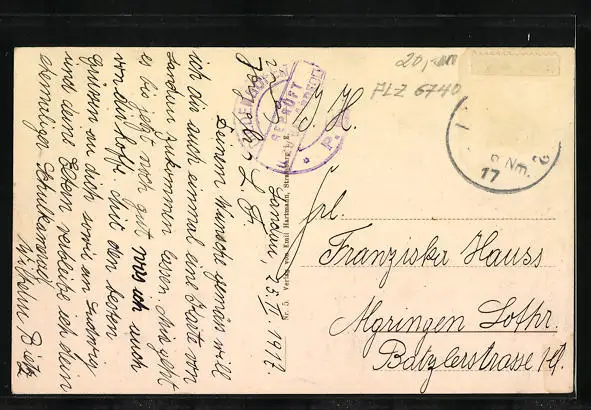 20,-
PLZ 6740
GEPRÜFT
P.
I. H.
17
Nm.
Frl.
Franziska Hauss
Algringen Lothr.
Batzlerstrasse 14.
Nr. 5. Verlag von Emil Hartmann, Strassburg i. E.
25. II. 1917
L. F.
Deinem Wunsche gemäss will
ich dir auch einmal eine Karte von
landen zukommen lassen. Mir geht
es bis jetzt noch gut was ich auch
von dir hoffe. Mit den besten
Grüssen an dich sowie an Ludwig
und deine Eltern verbleibe ich dein
ehemaliger Schulkamerad
Wilhelm